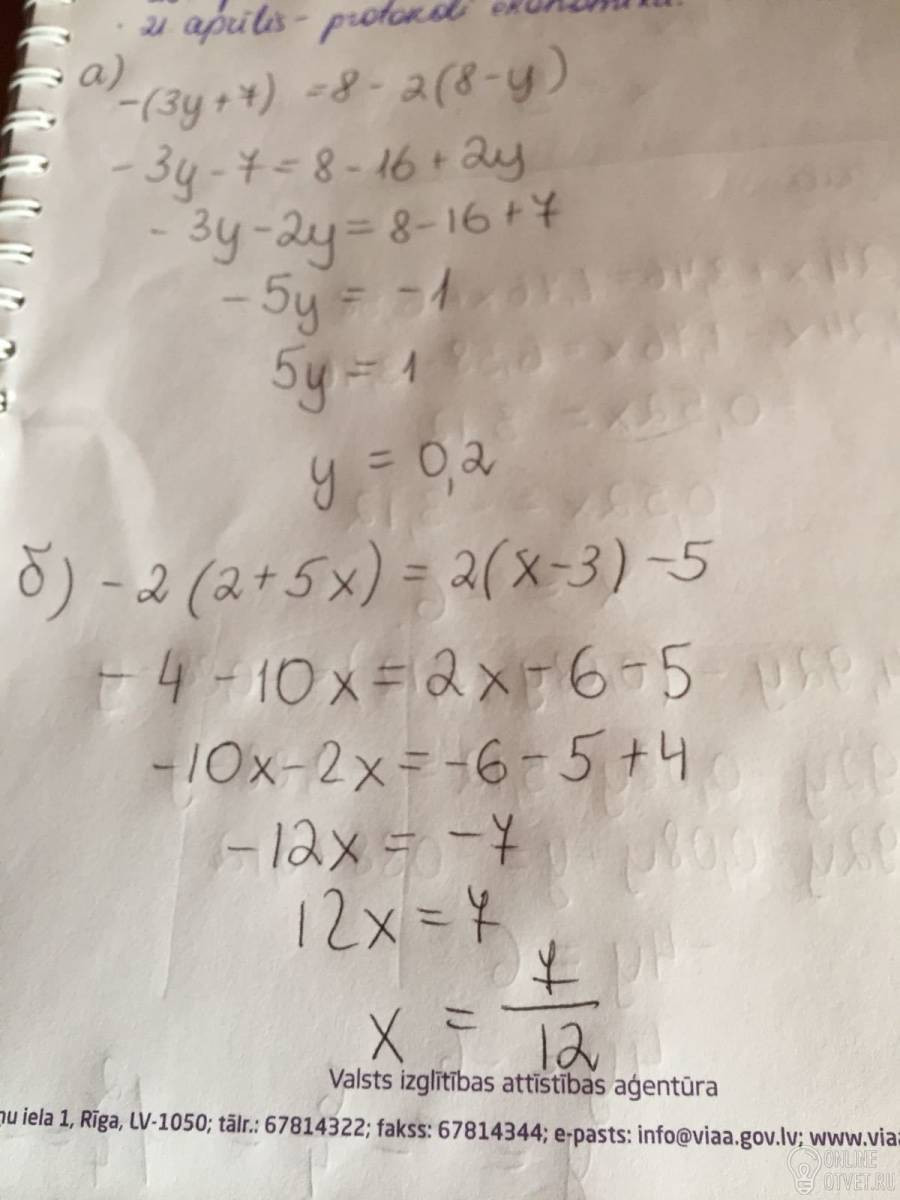 21 aprīlis - protokoli
а) -(3y+7) =8 - 2(8-y)
- 3y - 7 = 8 - 16 + 2y
- 3y - 2y = 8 - 16 + 7
- 5y = -1
5y = 1
y = 0,2
б) - 2 (2+5x) = 2(x-3) -5
- 4 - 10x = 2x - 6 - 5
-10x - 2x = -6 - 5 + 4
-12x = -7
12x = 7
x = 7/12
Valsts izglītības attīstības aģentūra
iela 1, Rīga, LV-1050; tālr.: 67814322; fakss: 67814344; e-pasts: info@viaa.gov.lv; www.via
ONLINE
OTVET.RU